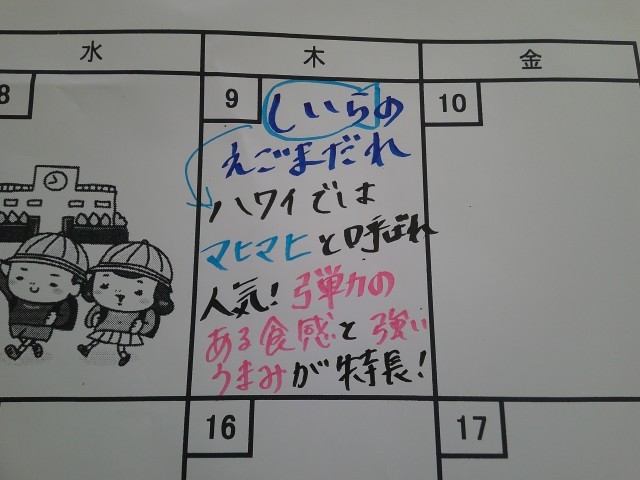 水 木 金
8 9 10
しいらの
えごまだれ
ハワイでは
マヒマヒと呼ばれ
人気！弾力の
ある食感と強い
うまみが特長！
16 17